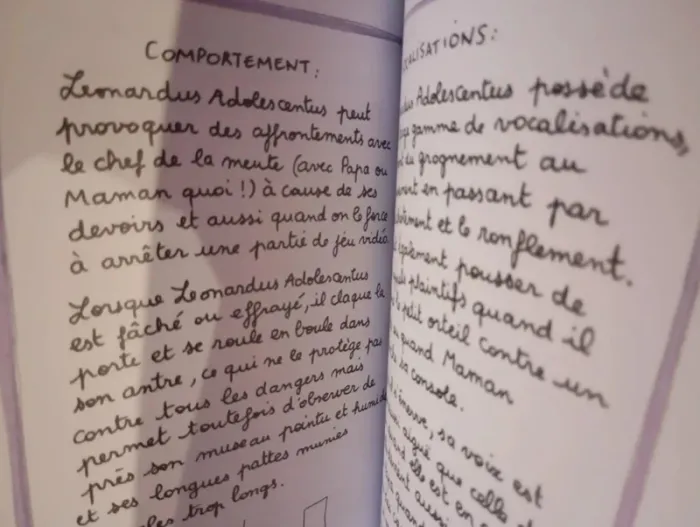 COMPORTEMENT:
Leonardus Adolescentus peut
provoquer des affrontements avec
le chef de la meute (avec Papa ou
Maman quoi!) à cause de ses
devoirs et aussi quand on le force
à arrêter une partie de jeu vidéo.
Lorsque Leonardus Adolescentus
est fâché ou effrayé, il claque la
porte et se roule en boule dans
son antre, ce qui ne le protège pas
contre tous les dangers mais
permet toutefois d'observer de
près son museau pointu et humide
et ses longues pattes munies
trop longs.
ALISATIONS:
Adolescentus possède
gamme de vocalisations,
du grognement au
en passant par
et le ronflement.
également pousser de
plaintifs quand il
petit orteil contre un
quand Maman
sa console.
énerve, sa voix est
aiguë que celle
elle est en
aussi
quand